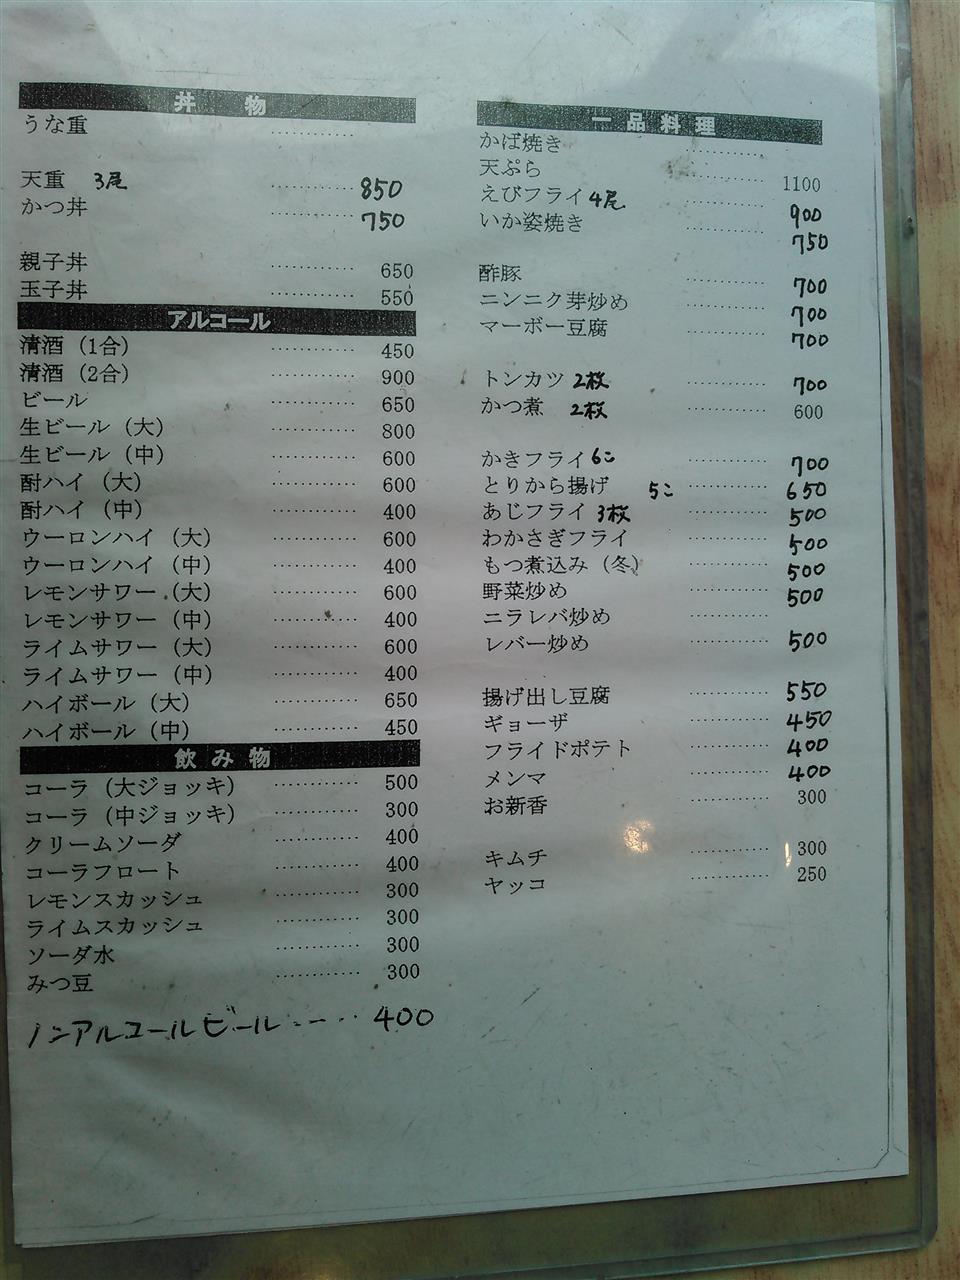 丼物
うな重 …………
天重 3尾 ………… 850
かつ丼 ………… 750
親子丼 ………… 650
玉子丼 ………… 550
アルコール
清酒（1合） ………… 450
清酒（2合） ………… 900
ビール ………… 650
生ビール（大） ………… 800
生ビール（中） ………… 600
酎ハイ（大） ………… 600
酎ハイ（中） ………… 400
ウーロンハイ（大） ………… 600
ウーロンハイ（中） ………… 400
レモンサワー（大） ………… 600
レモンサワー（中） ………… 400
ライムサワー（大） ………… 600
ライムサワー（中） ………… 400
ハイボール（大） ………… 650
ハイボール（中） ………… 450
飲み物
コーラ（大ジョッキ） ………… 500
コーラ（中ジョッキ） ………… 300
クリームソーダ ………… 400
コーラフロート ………… 400
レモンスカッシュ ………… 300
ライムスカッシュ ………… 300
ソーダ水 ………… 300
みつ豆 ………… 300
ノンアルコールビール ――‥ 400
一品料理
かば焼き …………
天ぷら ………… 1100
えびフライ 4尾 ………… 900
いか姿焼き ………… 750
酢豚 ………… 700
ニンニク芽炒め ………… 700
マーボー豆腐 ………… 700
トンカツ 2枚 ………… 700
かつ煮 2枚 ………… 600
かきフライ 6コ ………… 700
とりから揚げ 5コ ………… 650
あじフライ 3枚 ………… 500
わかさぎフライ ………… 500
もつ煮込み（冬） ………… 500
野菜炒め ………… 500
ニラレバ炒め …………
レバー炒め ………… 500
揚げ出し豆腐 ………… 550
ギョーザ ………… 450
フライドポテト ………… 400
メンマ ………… 400
お新香 ………… 300
キムチ ………… 300
ヤッコ ………… 250